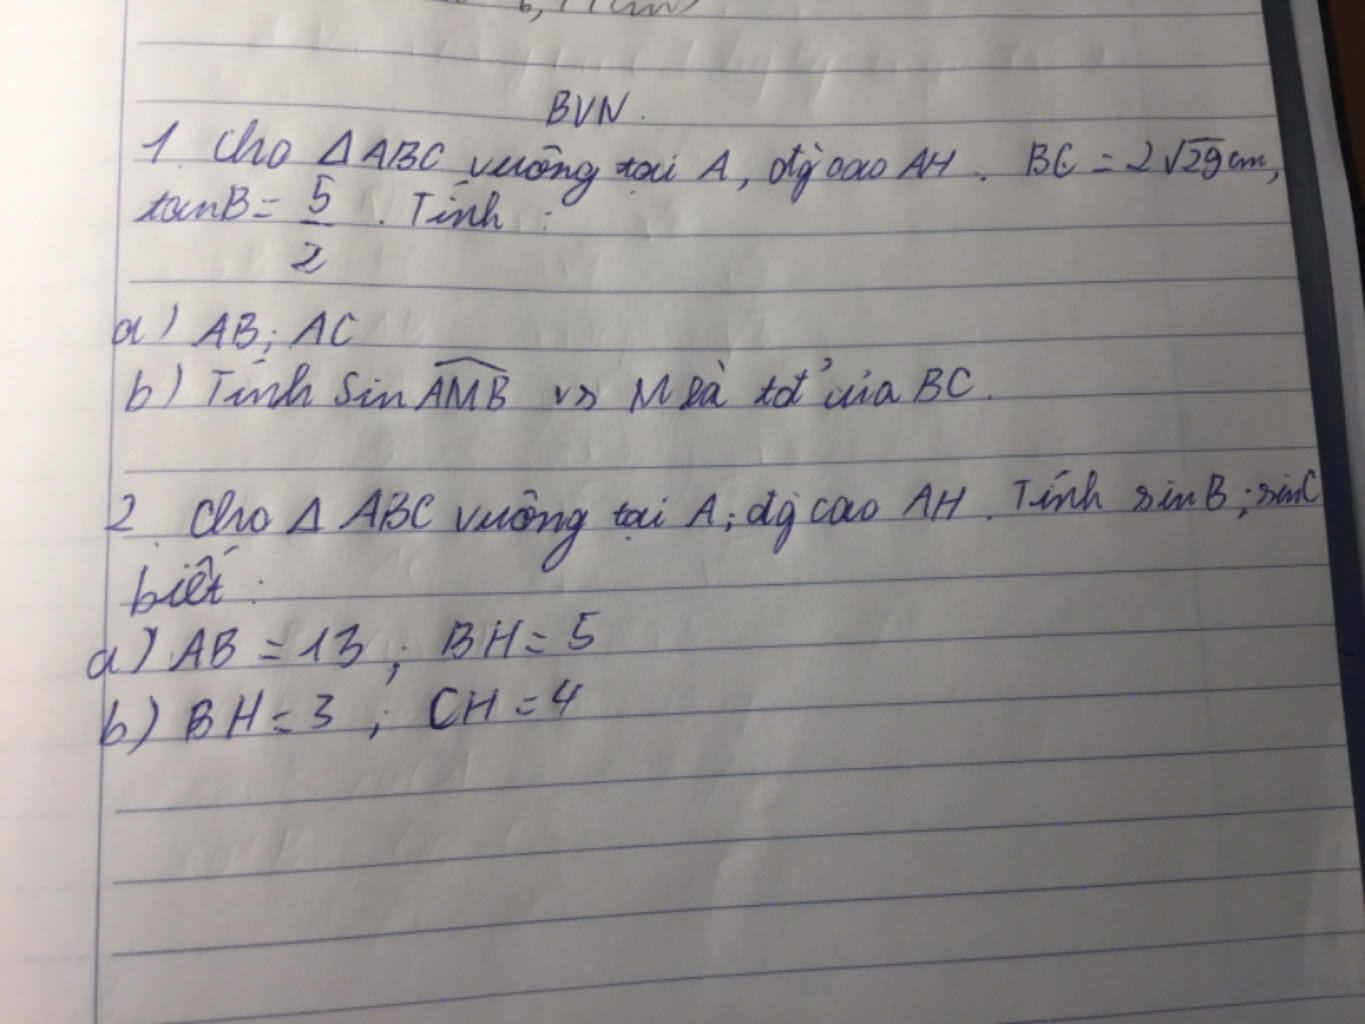 BVN.
1. Cho Δ ABC vuông tại A, đg̀ cao AH. BC = 2√29 cm,
tanB = 5/2. Tính:
a) AB; AC
b) Tính Sin AMB vs M là tđ' của BC.
2. Cho Δ ABC vuông tại A; đg̀ cao AH. Tính sinB; sinC
biết:
a) AB = 13; BH = 5
b) BH = 3; CH = 4